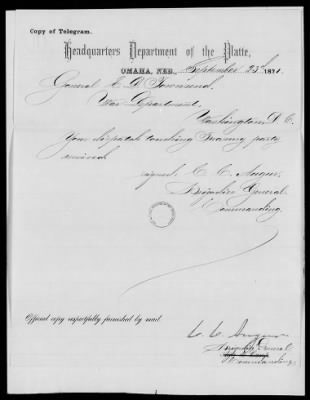 Copy of Telegram.
Headquarters Department of the Platte,
OMAHA, NEB., September 23d 1871.
General E. D. Townsend.
War Department.
Washington D. C.
Your dispatch touching party
received.
signed. C. C. Augur.
Brigadier General
Commanding.
Official copy respectfully furnished by mail.
C. C. Augur
Brigadier General
Commanding.